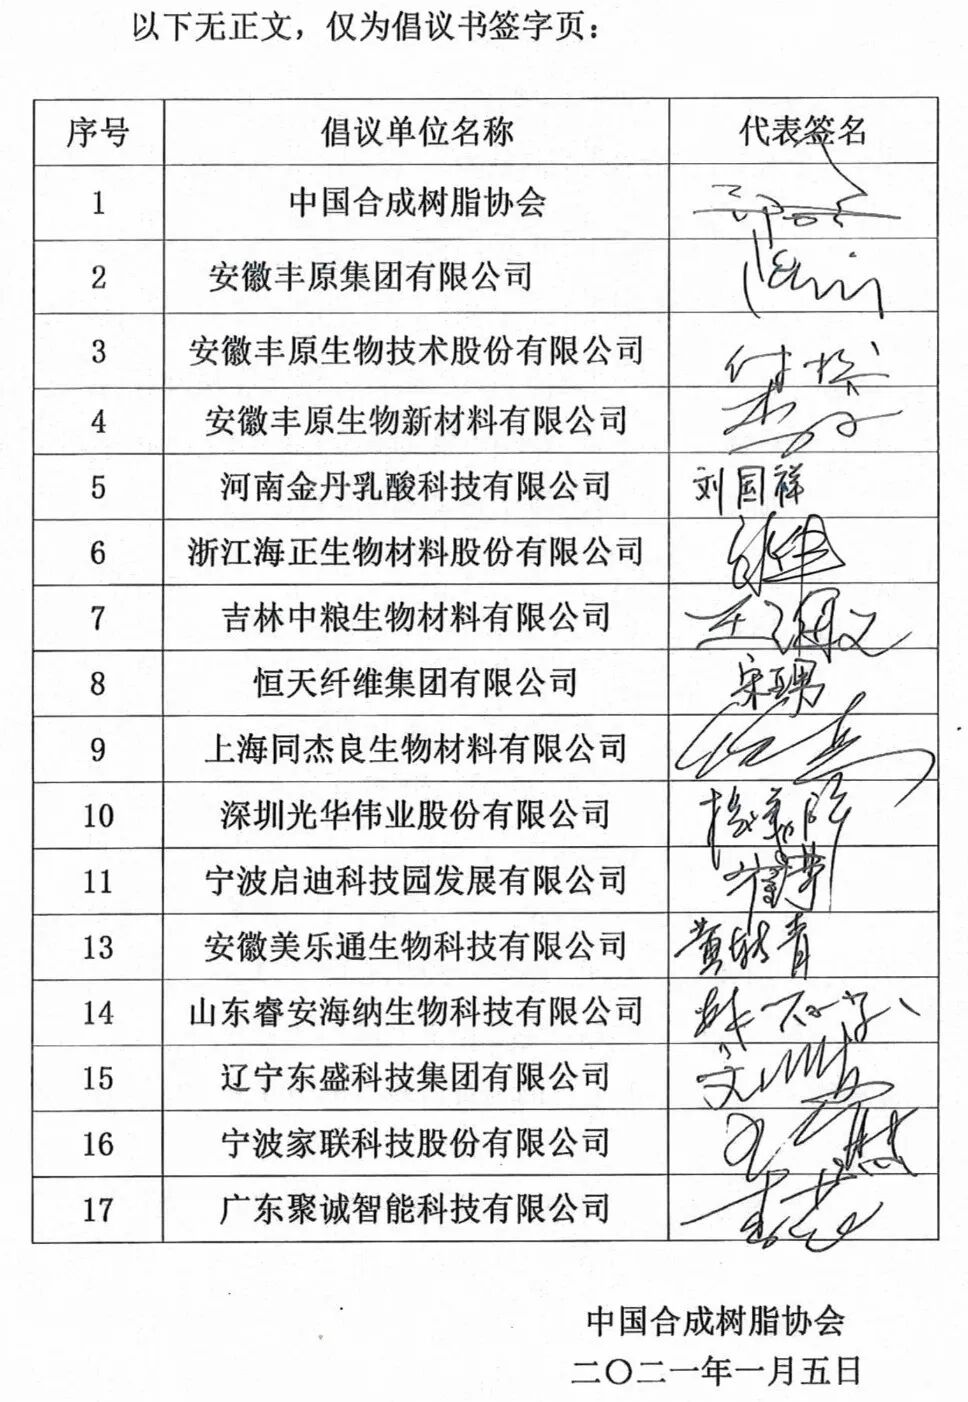 以下无正文，仅为倡议书签字页：
序号 倡议单位名称 代表签名
1 中国合成树脂协会
2 安徽丰原集团有限公司
3 安徽丰原生物技术股份有限公司
4 安徽丰原生物新材料有限公司
5 河南金丹乳酸科技有限公司 刘国祥
6 浙江海正生物材料股份有限公司
7 吉林中粮生物材料有限公司
8 恒天纤维集团有限公司
9 上海同杰良生物材料有限公司
10 深圳光华伟业股份有限公司
11 宁波启迪科技园发展有限公司
13 安徽美乐通生物科技有限公司
14 山东睿安海纳生物科技有限公司
15 辽宁东盛科技集团有限公司
16 宁波家联科技股份有限公司
17 广东聚诚智能科技有限公司
中国合成树脂协会
二〇二一年一月五日